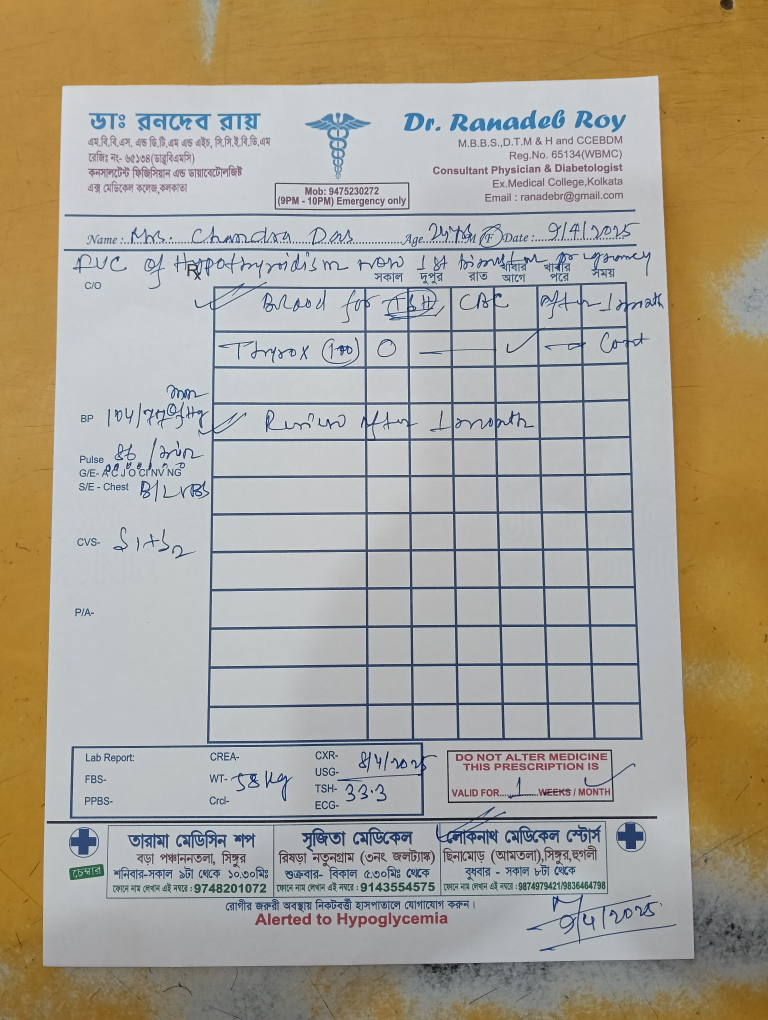 ডাঃ রনদেব রায়
এম.বি.বি.এস. এন্ড ডি.টি.এম এন্ড এইচ, সি.সি.ই.বি.ডি.এম
রেজিঃ নং- ৬৫১৩৪(ডাব্লুবিএমসি)
কনসালটেন্ট ফিজিসিয়ান এন্ড ডায়াবেটোলজিষ্ট
এক্স মেডিকেল কলেজ,কলকাতা
Mob: 9475230272
(9PM - 10PM) Emergency only
Dr. Ranadeb Roy
M.B.B.S.,D.T.M & H and CCEBDM
Reg.No. 65134(WBMC)
Consultant Physician & Diabetologist
Ex.Medical College,Kolkata
Email : ranadebr@gmail.com
Name : Mrs. Chandra Das Age. M/F Date : 9/4/2025
of Hypothyroidism now 1st
Rx
C/O
সকাল দুপুর রাত খাবার আগে খাবার পরে সময়
Blood for TSH, CBC after 1 month
Thyrox (100) O — ✓ → Cont
Review after 1 month
BP 104/77 mm of Hg
Pulse 86 /min
G/E- A C J O CI NV NG
S/E - Chest B/L VBS
CVS- S1+S2
P/A-
Lab Report: CREA- CXR- 8/4/2025
FBS- WT- 58 kg USG-
TSH- 33.3
PPBS- Crcl- ECG-
DO NOT ALTER MEDICINE
THIS PRESCRIPTION IS
VALID FOR 1 WEEKS / MONTH
চেম্বার
তারামা মেডিসিন শপ
বড়া পঞ্চাননতলা, সিঙ্গুর
শনিবার-সকাল ৯টা থেকে ১০.৩০মিঃ
ফোনে নাম লেখান এই নম্বরে : 9748201072
সৃজিতা মেডিকেল
রিষড়া নতুনগ্রাম (৩নং জলট্যাঙ্ক)
শুক্রবার- বিকাল ৫:৩০মিঃ থেকে
ফোনে নাম লেখান এই নম্বরে : 9143554575
লোকনাথ মেডিকেল স্টোর্স
ছিনামোড় (আমতলা),সিঙ্গুর,হুগলী
বুধবার - সকাল ৮টা থেকে
ফোনে নাম লেখান এই নম্বরে :9874979421/9836464798
রোগীর জরুরী অবস্থায় নিকটবর্তী হাসপাতালে যোগাযোগ করুন।
Alerted to Hypoglycemia
9/4/2025